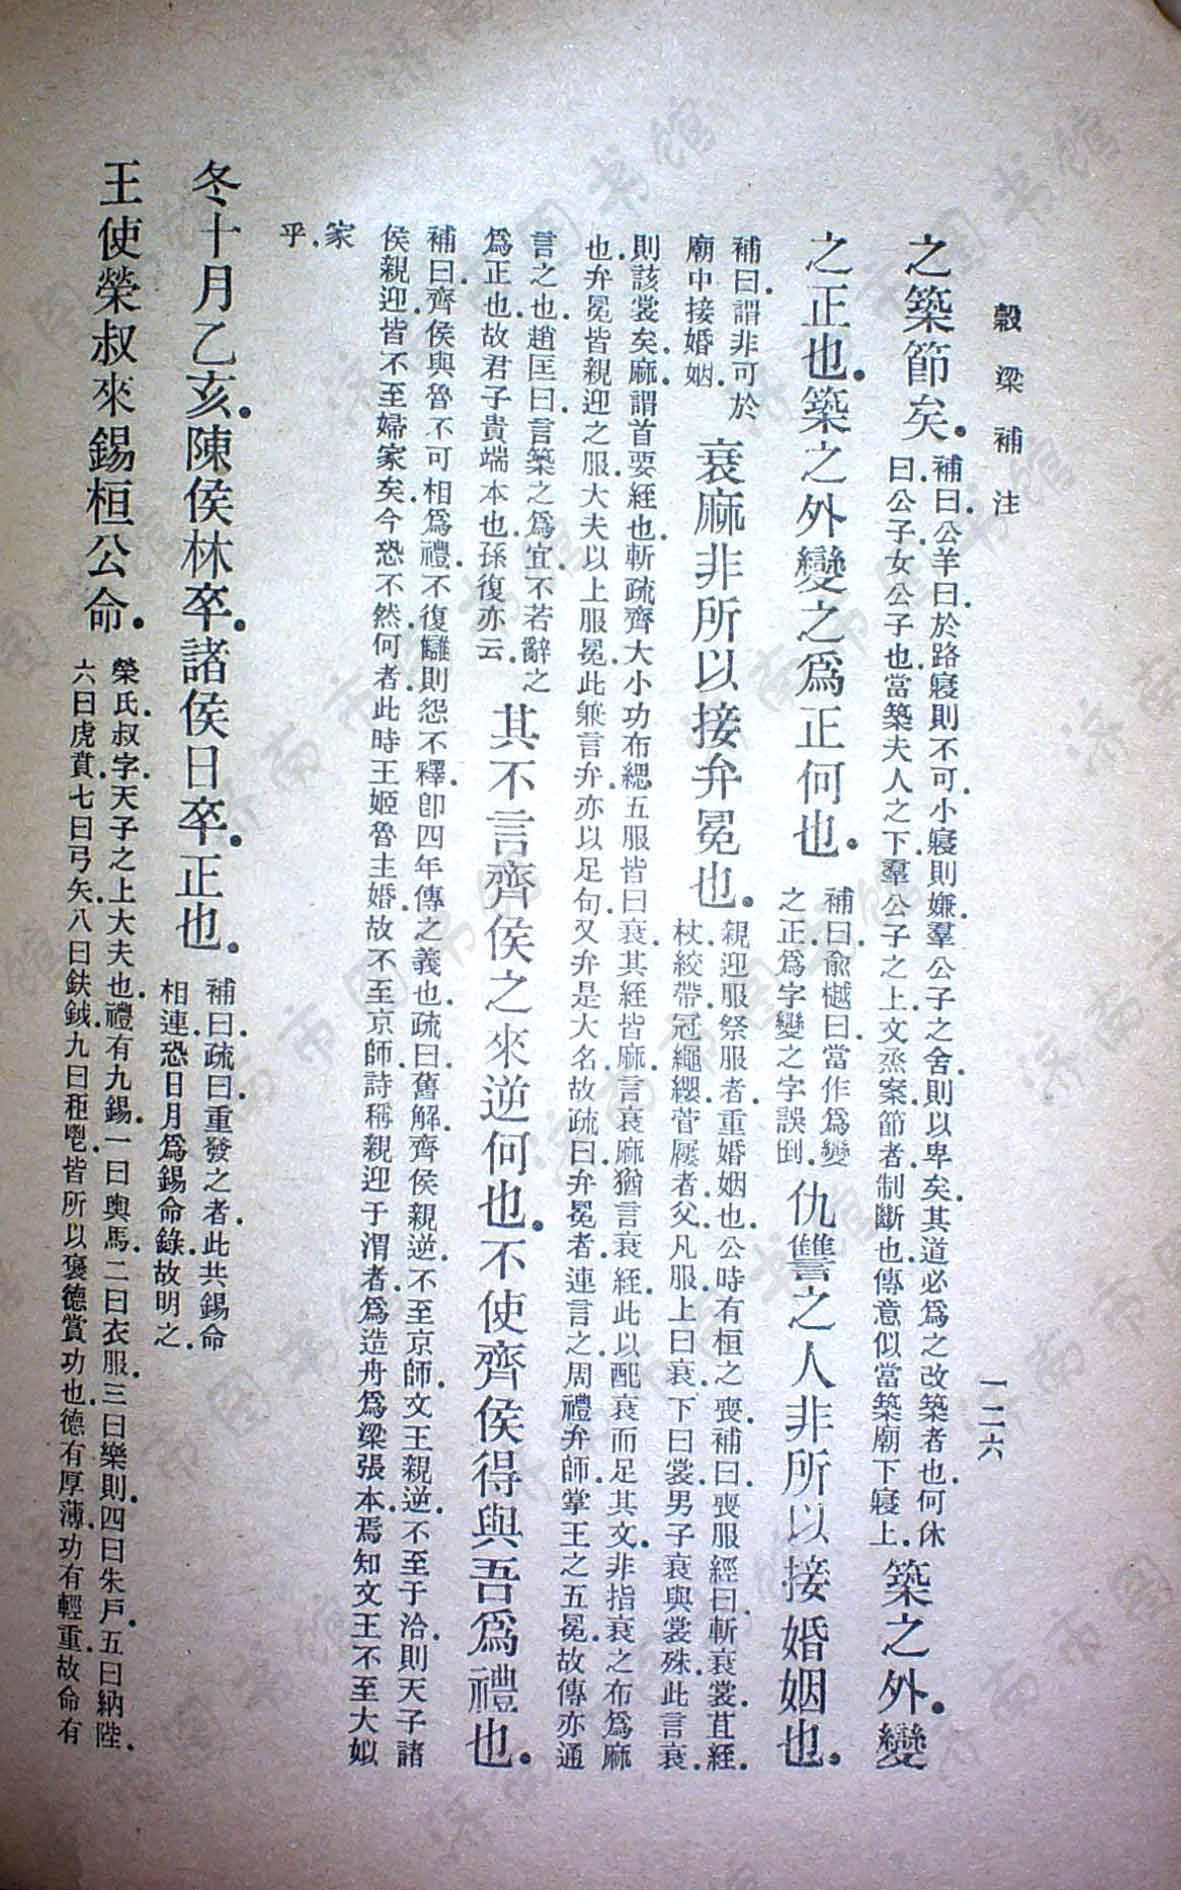 穀梁補注
一二六
之築節矣。補曰。公羊曰。於路寢則不可。小寢則嫌。羣公子之舍。則以卑矣。其道必爲之改築者也。何休
曰。公子。女公子也。當築夫人之下。羣公子之上。文烝案。節者。制斷也。傳意似當築廟下寢上。築之外。變
之正也。築之外變之爲正何也。補曰。俞樾曰。當作爲變
之正。爲字變之字誤倒。仇讐之人非所以接婚姻也。
補曰。謂非可於
廟中接婚姻。衰麻非所以接弁冕也。親迎服祭服者。重婚姻也。公時有桓之喪。補曰。喪服經曰。斬衰裳。苴絰
杖。絞帶。冠繩纓。菅屨者。父。凡服上曰衰。下曰裳。男子衰與裳殊。此言衰
則該裳矣。麻謂首要絰也。斬疏齊大小功布緦。五服皆曰衰。其絰皆麻。言衰麻猶言衰絰。此以配衰而足其文。非指衰之布爲麻
也。弁冕皆親迎之服。大夫以上服冕。此兼言弁。亦以足句。又弁是大名。故疏曰。弁冕者。連言之。周禮弁師。掌王之五冕。故傳亦通
言之也。趙匡曰。言築之爲宜。不若辭之
爲正也。故君子貴端本也。孫復亦云。其不言齊侯之來逆何也。不使齊侯得與吾爲禮也。
補曰。齊侯與魯不可相爲禮。不復讎則怨不釋。卽四年傳之義也。疏曰。舊解。齊侯親逆。不至京師。文王親逆。不至于洽。則天子諸
侯親迎皆不至婦家矣。今恐不然。何者。此時王姬魯主婚。故不至京師。詩稱親迎于渭者。爲造舟爲梁張本。焉知文王不至大姒
家
乎。
冬十月乙亥。陳侯林卒。諸侯日卒。正也。補曰。疏曰。重發之者。此共錫命
相連。恐日月爲錫命錄。故明之。
王使榮叔來錫桓公命。榮氏。叔字。天子之上大夫也。禮有九錫。一曰輿馬。二曰衣服。三曰樂則。四曰朱戶。五曰納陛。
六曰虎賁。七曰弓矢。八曰鈇鉞。九曰秬鬯。皆所以褒德賞功也。德有厚薄。功有輕重。故命有